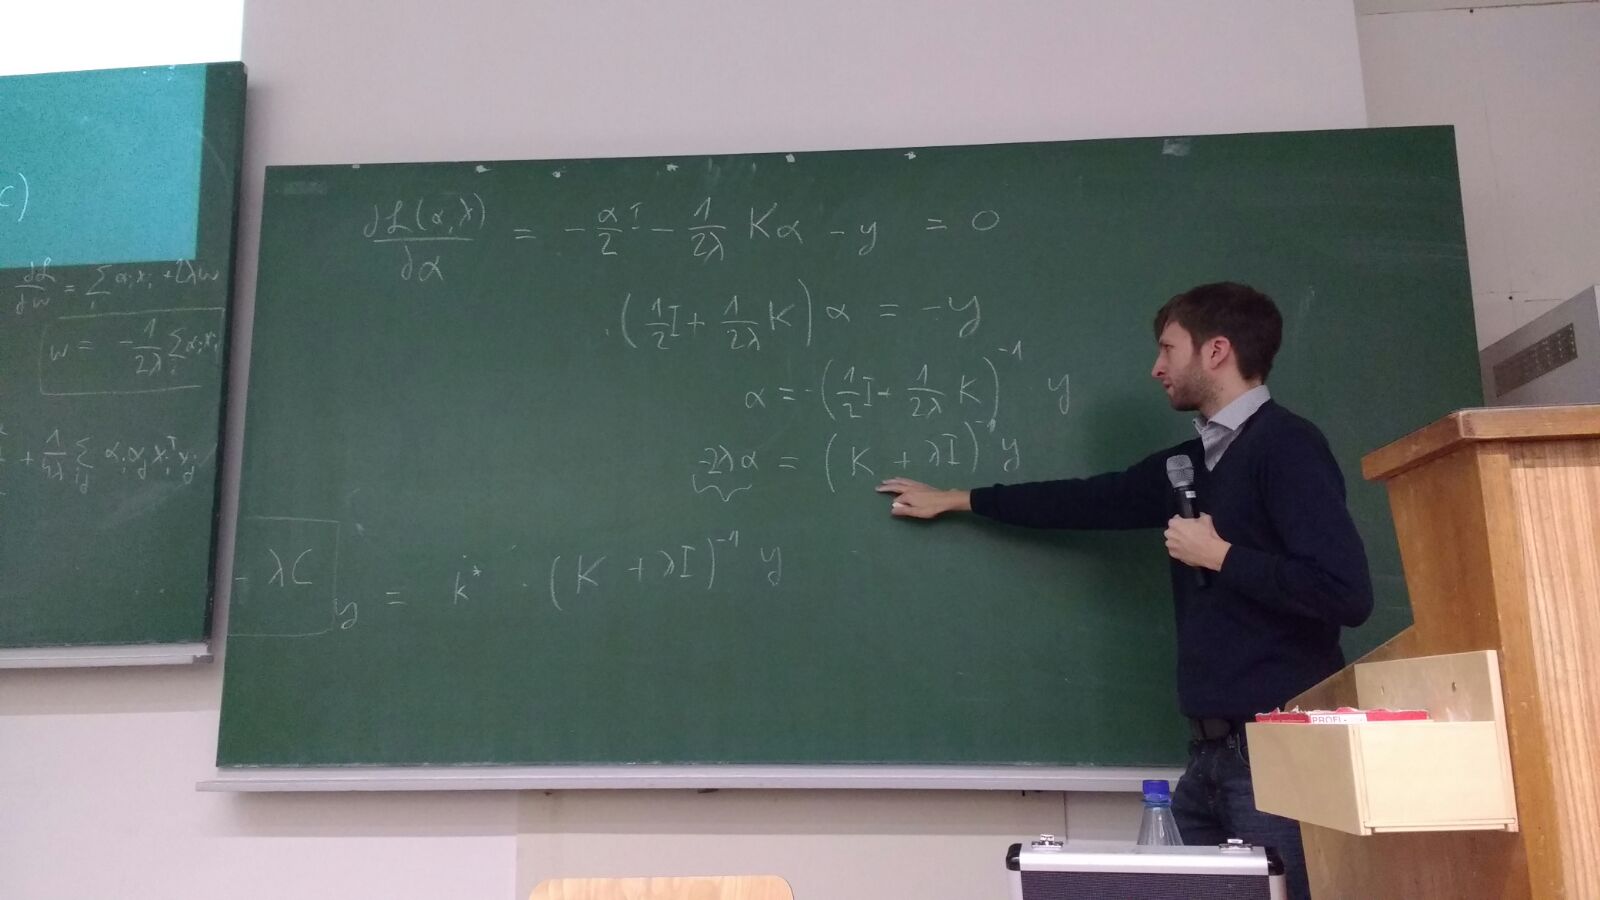 C)
∂ℒ/∂w = ∑_i α_i x_i + 2λw
w = -1/2λ ∑_i α_i x_i
+ 1/4λ ∑_ij α_i α_j x_i^T x_j
- λC
∂ℒ(α,λ)/∂α = - α/2 I - 1/2λ Kα - y = 0
(1/2 I + 1/2λ K) α = -y
α = -(1/2 I + 1/2λ K)^-1 y
-2λα = (K + λI)^-1 y
y = k* · (K + λI)^-1 y
PROFI